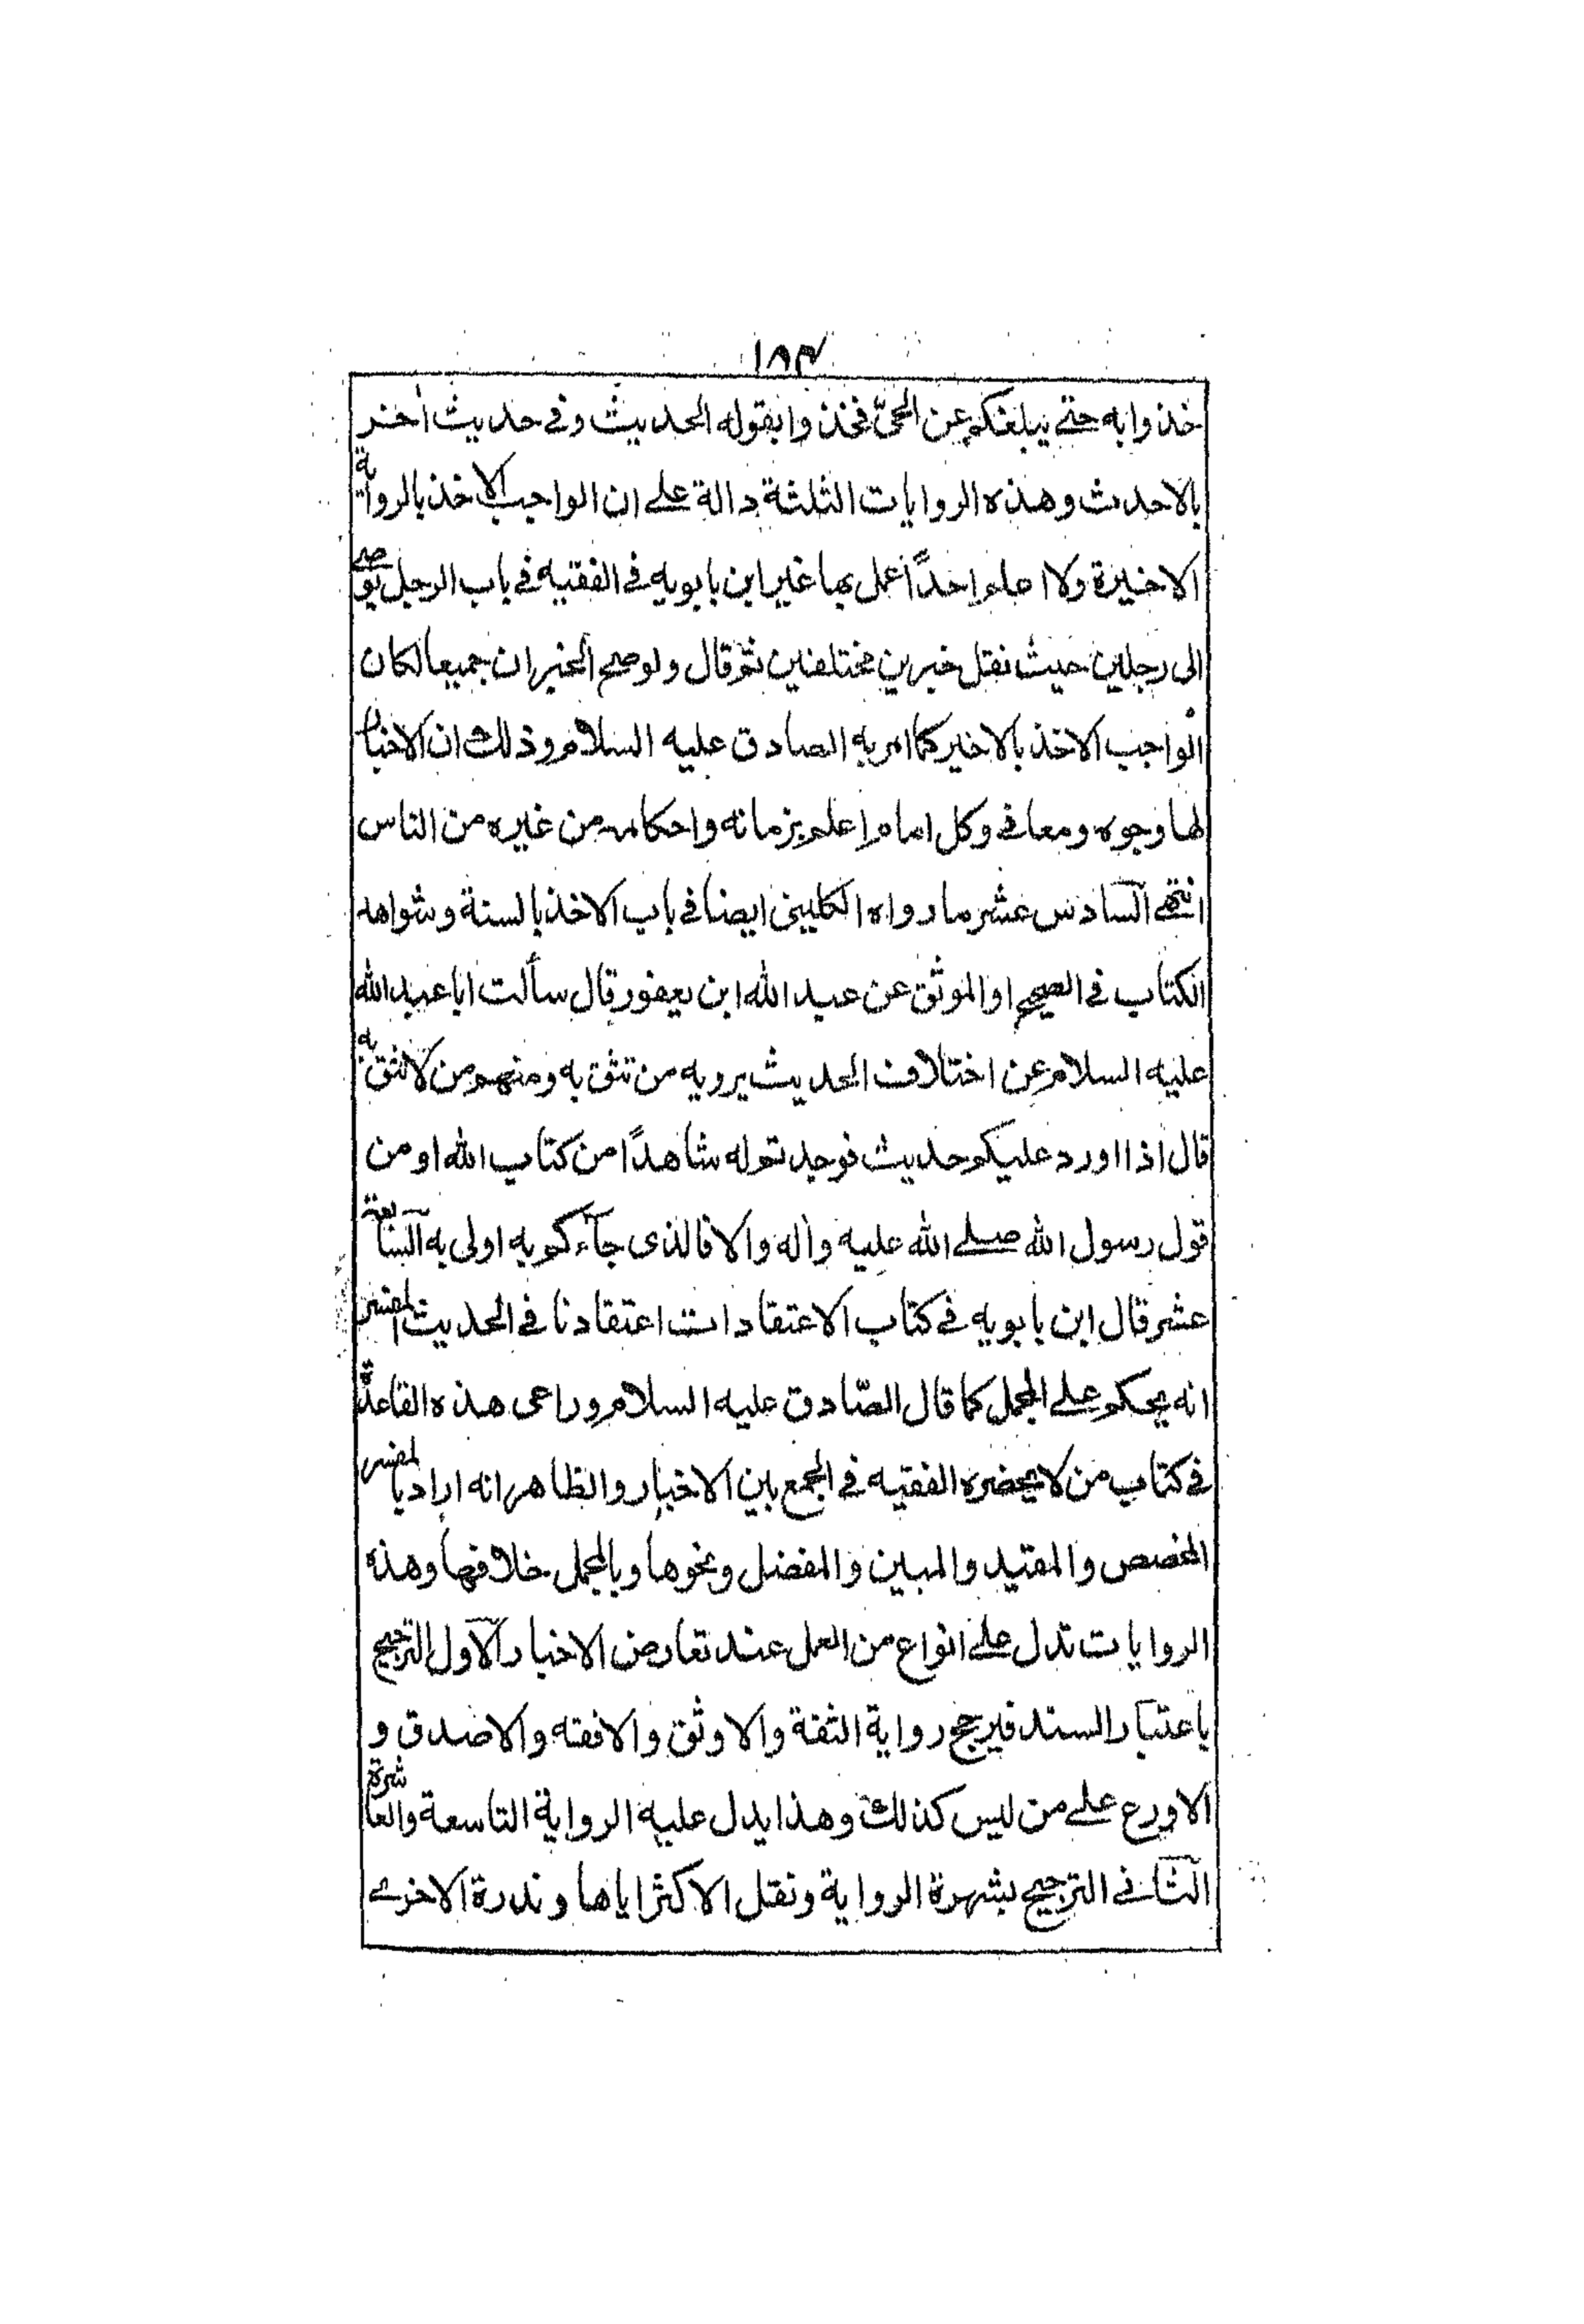 ١٨٣
خذوا به حتى يبلغكم عن الحىّ فخذوا بقوله الحديث وفى حديث اخر
بالاحدث وهذه الروايات الثلثة دالة على ان الواجب الاخذ بالرواية
الاخيرة ولا اعلم احدًا عمل بها غير ابن بابويه فى الفقيه فى باب الرجل يوصى
الى رجلين حيث نقل خبرين مختلفين ثم قال ولو صح الخبران جميعا لكان
الواجب الاخذ بالاخير كما امر به الصادق عليه السلام وذلك ان الاخبار
لها وجوه ومعانى وكل امام اعلم بزمانه واحكامه من غيره من الناس
انتهى السادس عشر ما رواه الكلينى ايضا فى باب الاخذ بالسنة وشواهد
الكتاب فى الصحيح او الموثق عن عبد الله ابن يعفور قال سألت ابا عبد الله
عليه السلام عن اختلاف الحديث يرويه من تثق به ومنهم من لا تثق به
قال اذا اورد عليكم حديث فوجدتم له شاهدًا من كتاب الله او من
قول رسول الله صلى الله عليه وآله والا فالذى جآءكم به اولى به السابعة
عشر قال ابن بابويه فى كتاب الاعتقادات اعتقادنا فى الحديث المفسر
انه يحكم على المجمل كما قال الصّادق عليه السلام وراعى هذه القاعدة
فى كتاب من لا يحضره الفقيه فى الجمع بين الاخبار والظاهر انه اراد بالمفسر
المخصص والمقيد والمبين والمفصل ونحوها وبالمجمل خلافها وهذه
الروايات تدل على انواع من العمل عند تعارض الاخبار الاول الترجيح
باعتبار السند فيرجح رواية الثقة والاوثق والافقه والاصدق و
الاورع على من ليس كذلك وهذا يدل عليه الرواية التاسعة والعاشرة
الثانى الترجيح بشهرة الرواية ونقل الاكثر اياها وندرة الاخرى